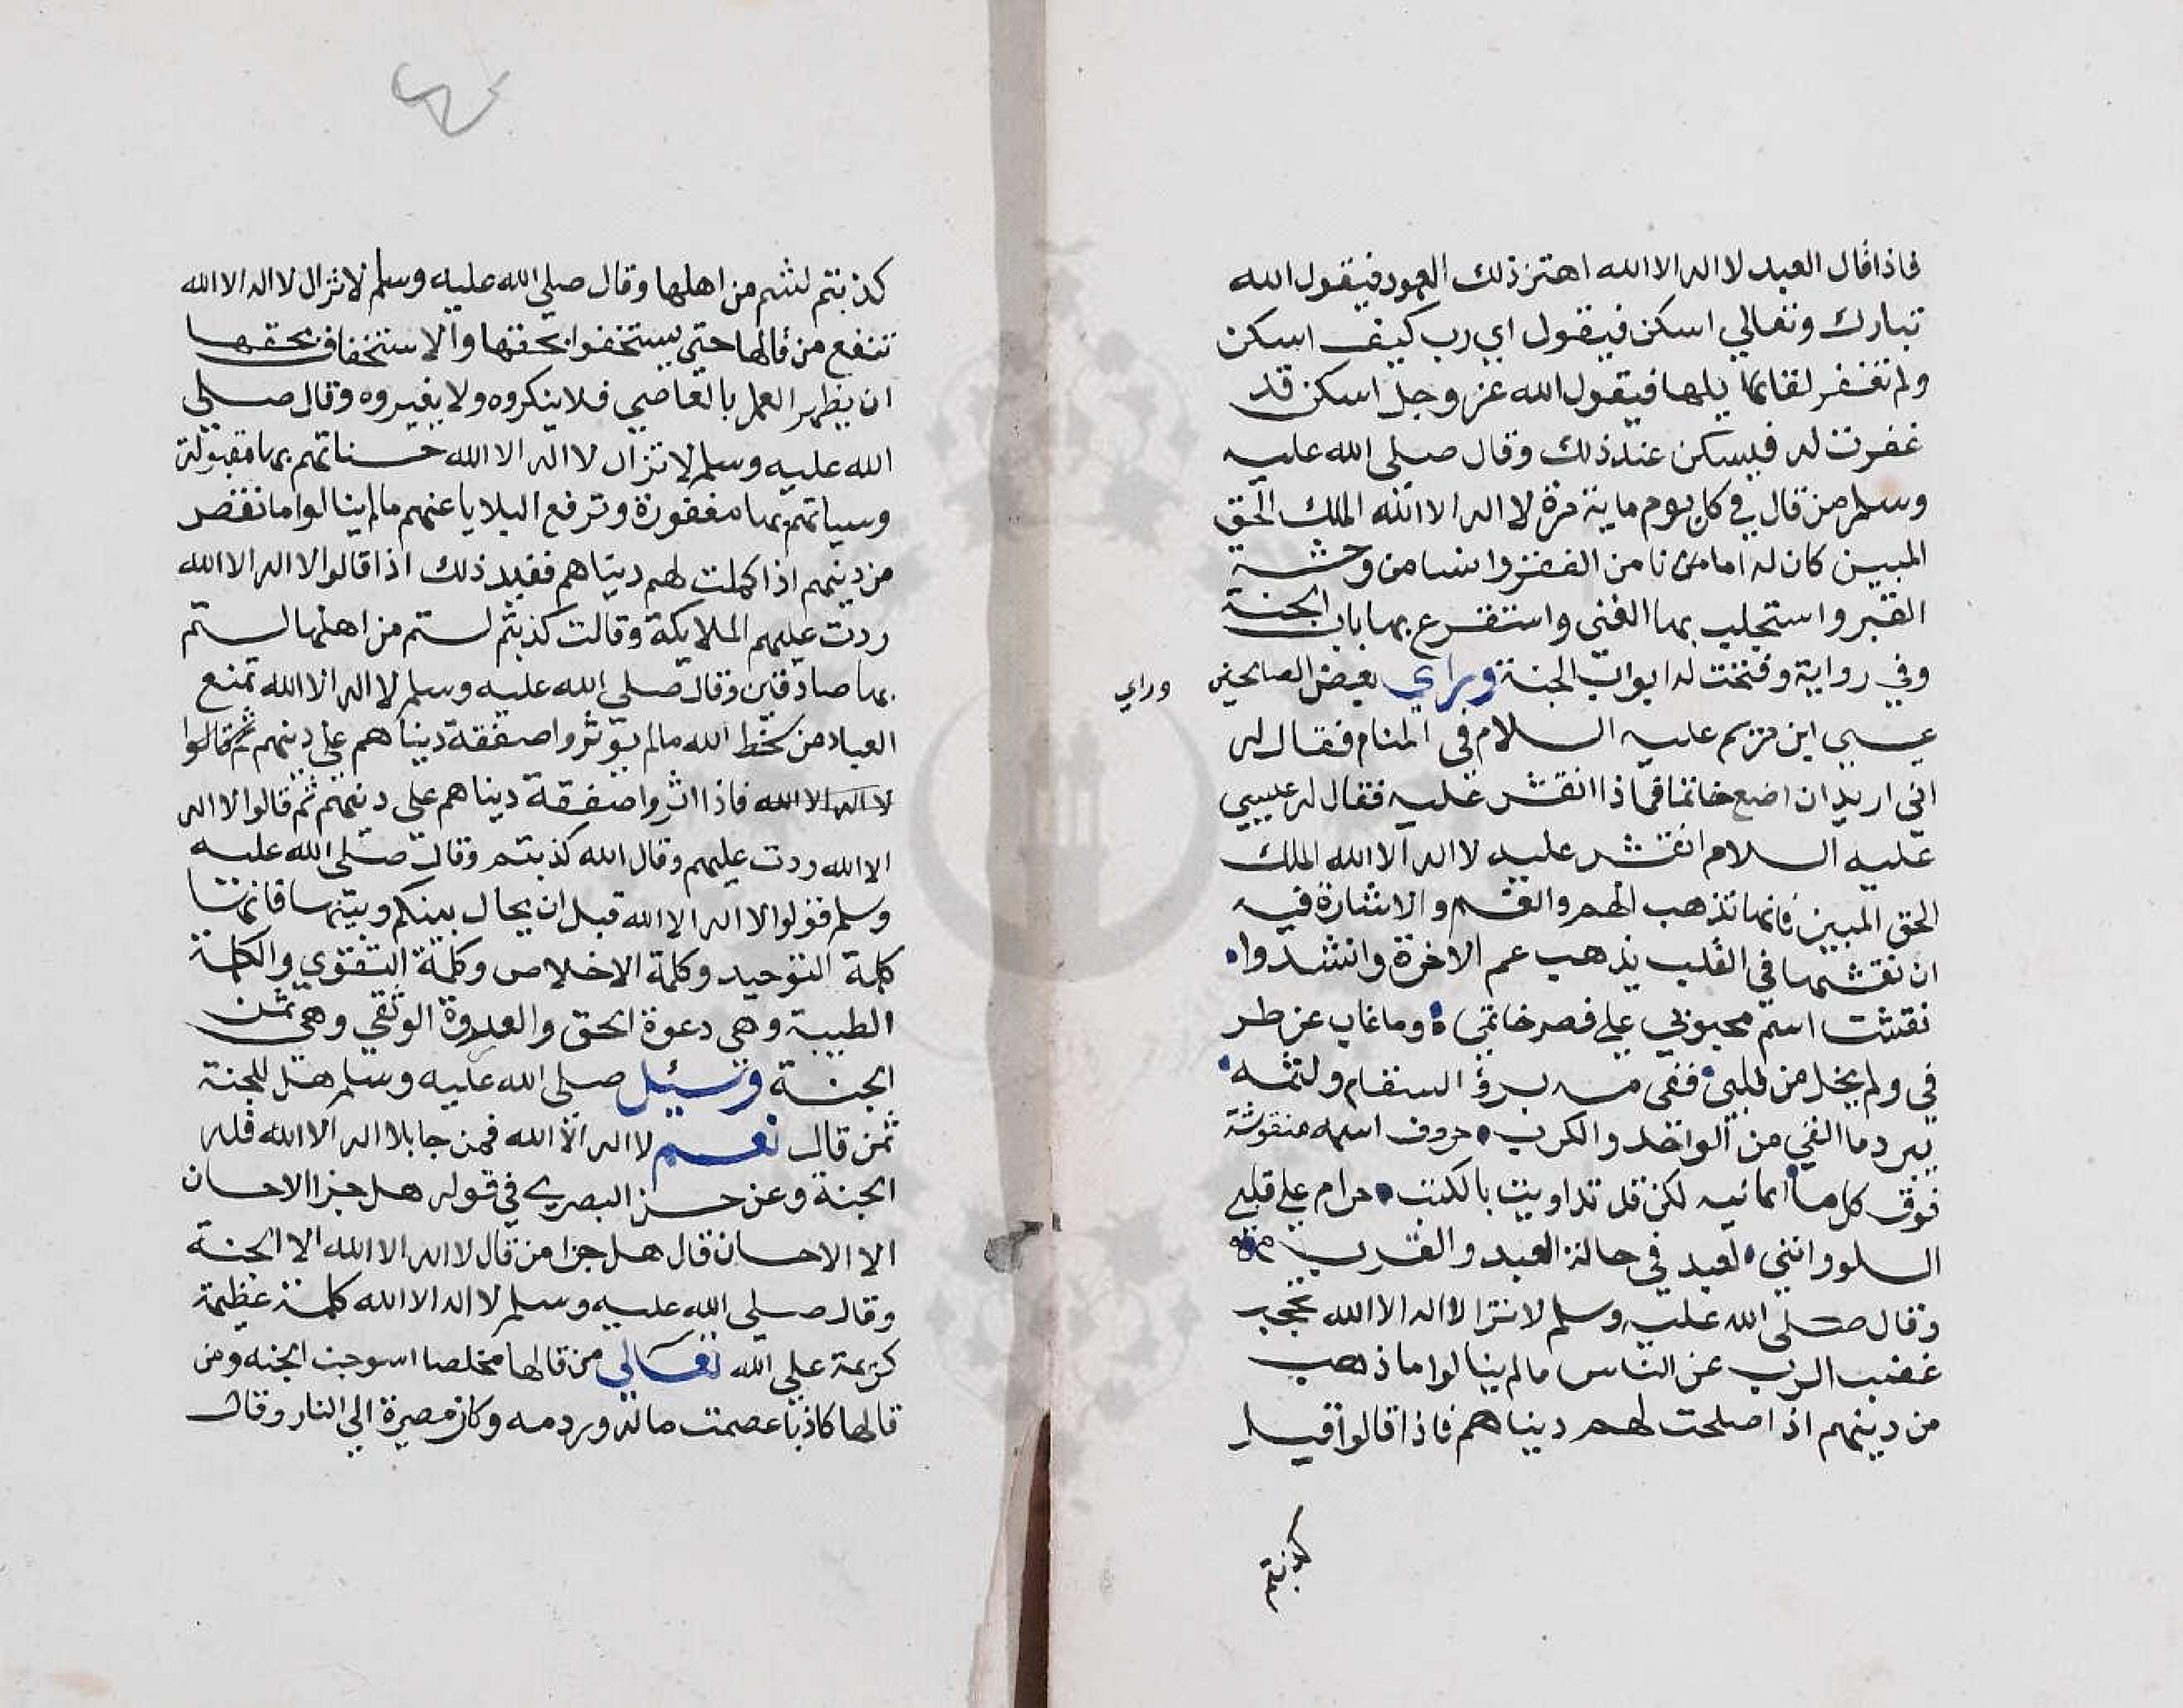 فاذا قال العبد لا اله الا الله اهتز ذلك العمود فيقول الله
تبارك وتعالي اسكن فيقول اي رب كيف اسكن
ولم تغفر لقايلها فيقول الله عز وجل اسكن قد
غفرت له فيسكن عند ذلك وقال صلي الله عليه
وسلم من قال في كل يوم ماية مرة لا اله الا الله الملك الحق
المبين كان له امانا من الفقر وانسا من وحشة
القبر واستجلب بها الغني واستقرع بها باب الجنة
وفي رواية وفتحت له ابواب الجنة وراي بعض الصالحين
وراي
عيسي ابن مريم عليه السلام في المنام فقال له
اني اريد ان اضع خاتما فماذا انقش عليه فقال له عيسي
عليه السلام انقش عليه لا اله الا الله الملك
الحق المبين فانها تذهب الهم والغم والاشارة فيه
ان نقشها في القلب يذهب غم الاخرة وانشدوا
نقشت اسم محبوبي علي فص خاتمي وما غاب عن طر
في ولم يخل من قلبي ففي مسه برؤ السقام ولثمه
يبرد ما القي من الواجد والكرب حروف اسمه منقوشة
فوق كل ما امانيه لكن قد تداويت بالكتب حرام علي قلبي
السلو وانني لعبد في حالة البعد والقرب
وقال صلي الله عليه وسلم لا تزال لا اله الا الله تحجب
غضب الرب عن الناس ما لم ينالوا ما ذهب
من دينهم اذا صلحت لهم دنياهم فاذا قالوا قيل
كذبتم لستم من اهلها وقال صلي الله عليه وسلم لا تزال لا اله الا الله
تنفع من قالها حتي يستخفوا بحقها والاستخفاف بحقها
ان يظهر العمل بالمعاصي فلا ينكروه ولا يغيروه وقال صلي
الله عليه وسلم لا تزال لا اله الا الله حسناتهم بها مقبولة
وسياتهم بها مغفورة وترفع البلايا عنهم ما لم ينالوا ما نقص
من دينهم اذا كملت لهم دنياهم فعند ذلك اذا قالوا لا اله الا الله
ردت عليهم الملايكة وقالت كذبتم لستم من اهلها لستم
بها صادقين وقال صلي الله عليه وسلم لا اله الا الله تمنع
العباد من سخط الله ما لم يوثروا صفقة دنياهم علي دينهم ثم قالوا
لا اله الا الله فاذا اثروا صفقة دنياهم علي دينهم ثم قالوا لا اله
الا الله ردت عليهم وقال الله كذبتم وقال صلي الله عليه
وسلم فقولوا لا اله الا الله قبل ان يحال بينكم وبينها فانها
كلمة التوحيد وكلمة الاخلاص وكلمة التقوي والكلمة
الطيبة وهي دعوة الحق والعروة الوثقي وهي ثمن
الجنة وسئل صلي الله عليه وسلم هل للجنة
ثمن قال نعم لا اله الا الله فمن جا بلا اله الا الله فله
الجنة وعن حسن البصري في قوله هل جزا الاحسان
الا الاحسان قال هل جزا من قال لا اله الا الله الا الجنة
وقال صلي الله عليه وسلم لا اله الا الله كلمة عظيمة
كريمة علي الله تعالي من قالها مخلصا اسوجب الجنه ومن
قالها كاذبا عصمت ماله ودمه وكان مصيره الي النار وقال